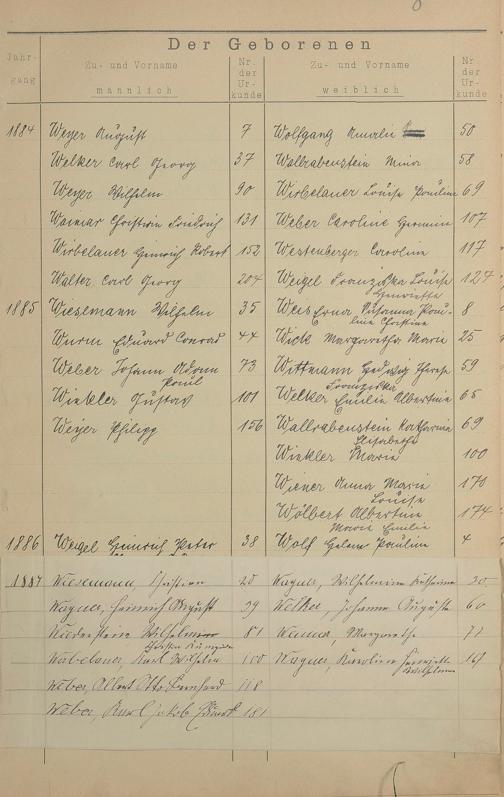 Der Geborenen
Jahr-
gang
Zu- und Vorname
männlich
Nr.
der
Ur-
kunde
Zu- und Vorname
weiblich
Nr
der
Ur-
kunde
1884 Weyer August 7 Wolfgang Amalie 50
Welker Carl Georg 37 Wallrabenstein Mina 58
Weyer Wilhelm 90 Wirbelauer Louise Pauline 69
Weimar Christian Friedrich 131 Weber Caroline Hermine 107
Wirbelauer Heinrich Robert 152 Westenberger Caroline 117
Walter Carl Georg 204 Weigel Franziska Louise 127
Henriette
1885 Wiesemann Wilhelm 35 Weis Erna Susanna Pau- 8
line Christine
Wurm Eduard Conrad 44 Wick Margaretha Marie 25
Weber Johann Adam 73 Wittmann Hedwig Therese 59
Paul Franziska
Winkler Gustav 101 Welker Emilie Albertine 65
Weyer Philipp 156 Wallrabenstein Katharine 69
Elisabetha
Winkler Marie 100
Wiener Anna Marie 170
Louise
Wölbert Albertine 174
Marie Emilie
1886 Weigel Heinrich Peter 38 Wolf Helene Pauline 4
1887 Wiesemann, 20 Wagner, Wilhelmine 30
Wagner, Heinrich August 39 Welker, Johanna Auguste 60
Wilhelm 81 Margarethe 77
Karl Wilhelm 100 Wagner, Karoline Henriette
Wilhelmine
Weber, Albert Otto Bernhard 118
Weber, Karl Jakob Eduard 181